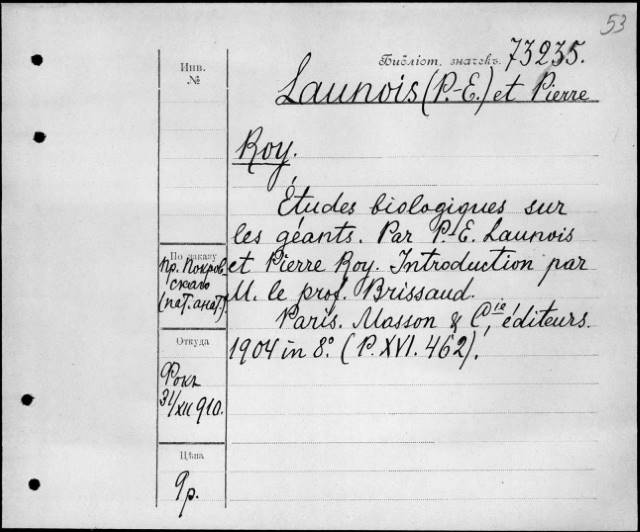 53
Библіот. значекъ. 73235.
Инв.
№
Launois (P.-E.) et Pierre
Roy.
Études biologiques sur
les géants. Par P.-E. Launois
et Pierre Roy. Introduction par
M. le prof. Brissaud.
Paris. Masson & Cie, éditeurs.
1904 in 8°. (P. XVI. 462).
По заказу
Пр. Покров
скаго
(пат. анат.)
Откуда
Фокъ
31/XII 910.
Цѣна
9 р.